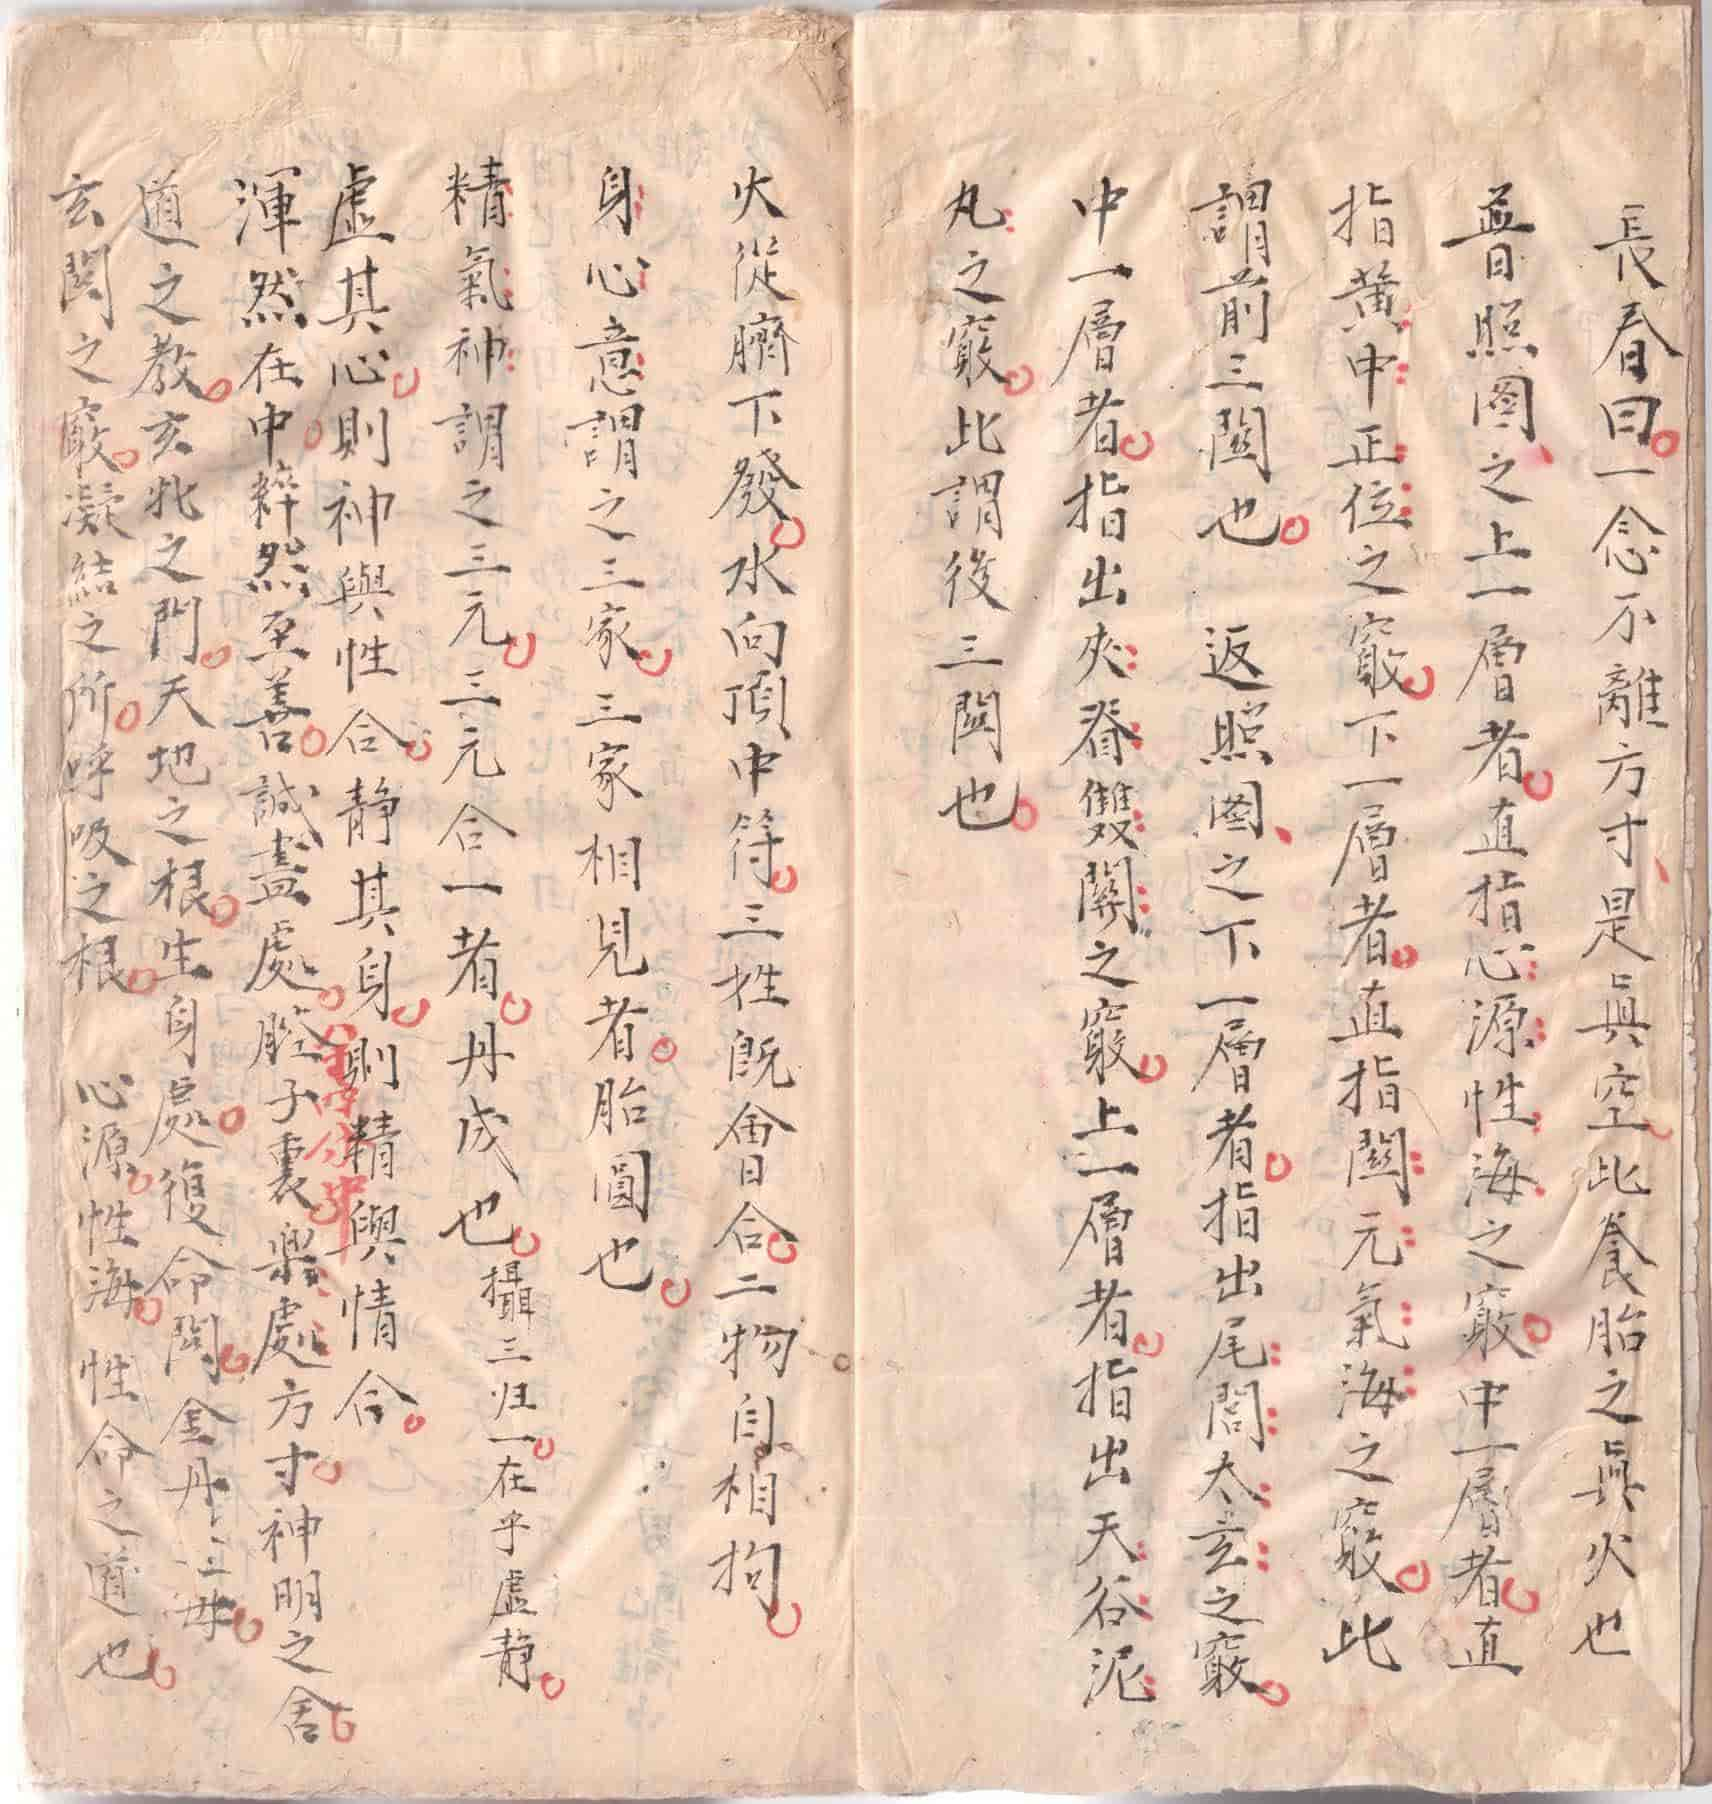 長春曰一念不離方寸是眞空此養胎之眞火也
普照图之上一層者直指心源性海之竅中一層者直
指黄中正位之竅下一層者直指関元氣海之竅此
謂前三関也　返照图之下一層者指出尾閭太玄之竅
中一層者指出夾脊雙關之竅上一層者指出天谷泥
丸之竅此謂後三関也
火從臍下發水向頂中符三姓旣會合二物自相拘
身心意謂之三家三家相見者胎圓也
精氣神謂之三元三元合一者丹成也攝三归一在乎虛静
虛其心則神與性合静其身則精與情合
渾然在中粹然至善誠盡處腔子裏樂處方寸神明之舍
道之教玄牝之門天地之根生身處復命関金丹之母
玄関之竅凝結之所呼吸之根　心源性海　性命之道也